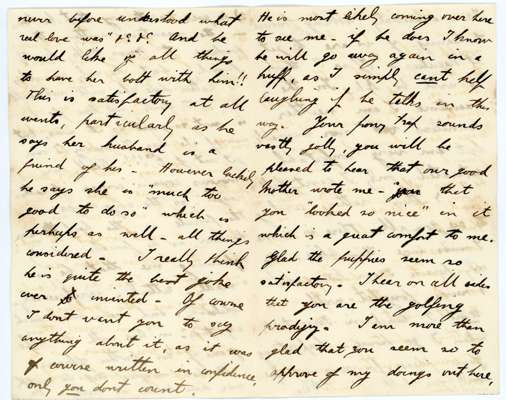 never before understood what
real love was" &c &c. And he
would like of all things
to have her bolt with him!!
This is satisfactory at all
events, particularly as he
says her husband is a
friend of his - However luckily
he says she is "much too
good to do so" which is
perhaps as well - all things
considered - I really think
he is quite the best joke
ever invented - Of course
I dont want you to say
anything about it, as it was
of course written in confidence,
only you dont count.
He is most likely coming over here
to see me - if he does I know
he will go away again in a
huff, as I simply cant help
laughing if he talks in this
way. Your pony trap sounds
vastly jolly, you will be
pleased to hear that our good
Mother wrote me - that
you "looked so nice" in it
which is a great comfort to me.
Glad the puppies seem so
satisfactory. I hear on all sides
that you are the golfing
prodigy. I am more than
glad that you seem so to
approve of my doings out here,